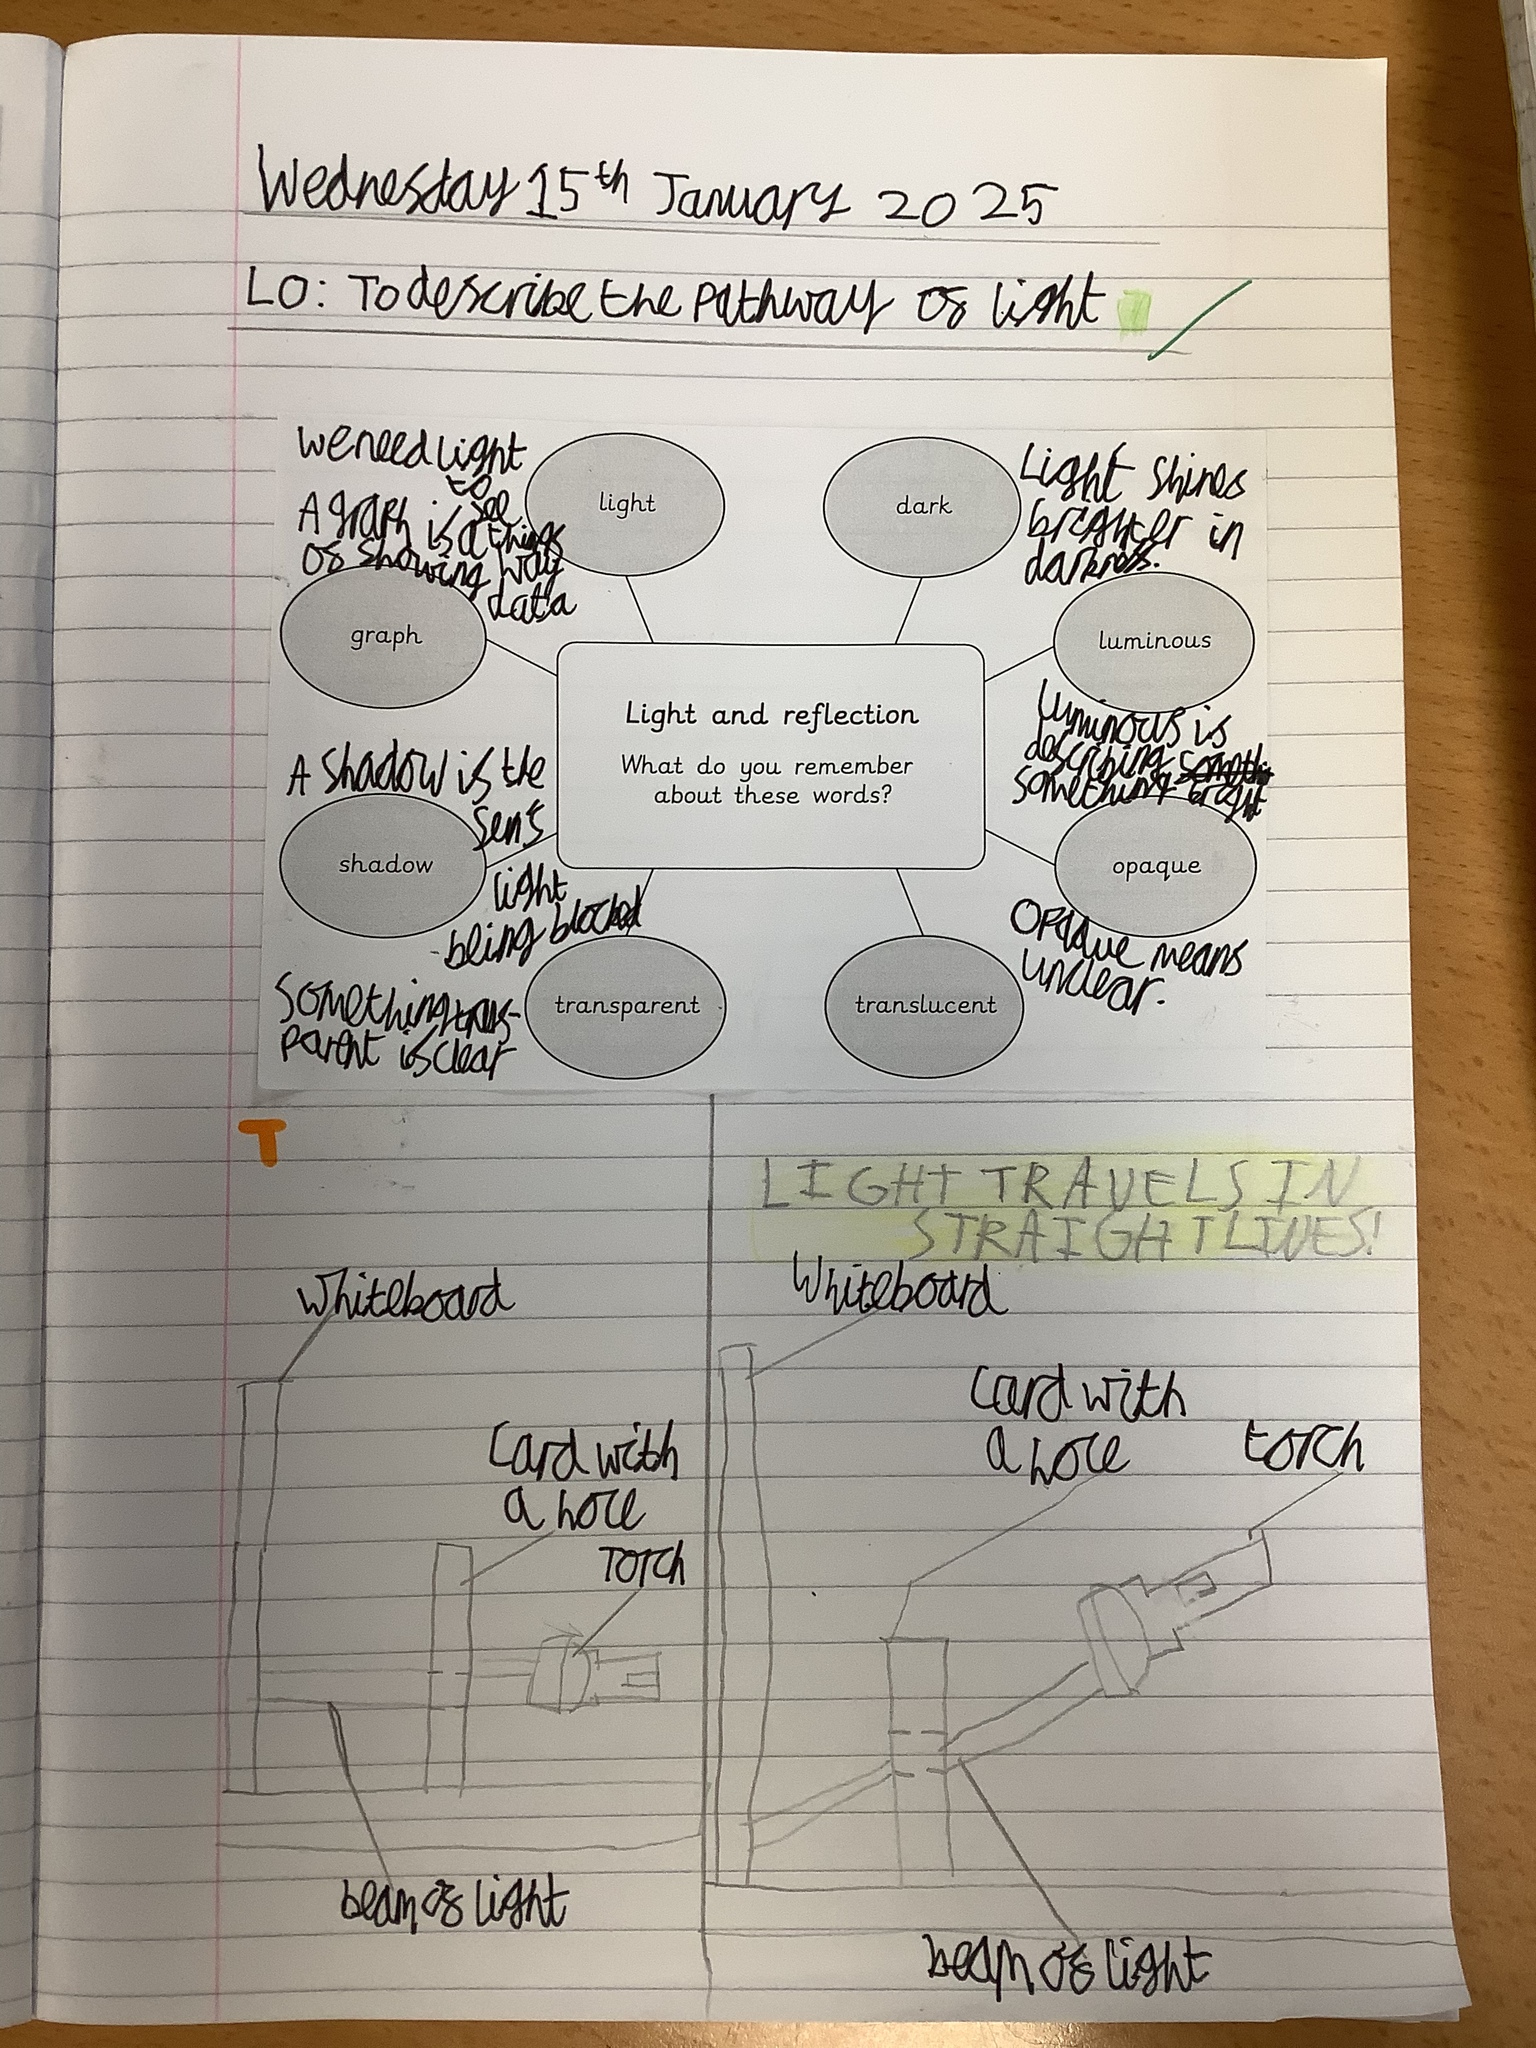 Wednesday 15th January 2025
LO: To describe the pathway of light
we need light
to
see
light
dark
Light shines
brighter in
darkness.
A graph is a things
of showing way
data
graph
luminous
luminous is
describing
something bright
Light and reflection
What do you remember
about these words?
A shadow is the
light
being blocked
shadow
opaque
Opaque means
unclear.
something trans-
parent is clear
transparent
translucent
T
LIGHT TRAVELS IN
STRAIGHT LINES!
Whiteboard
Card with
a hole
Torch
beam of light
Whiteboard
Card with
a hole
torch
beam of light